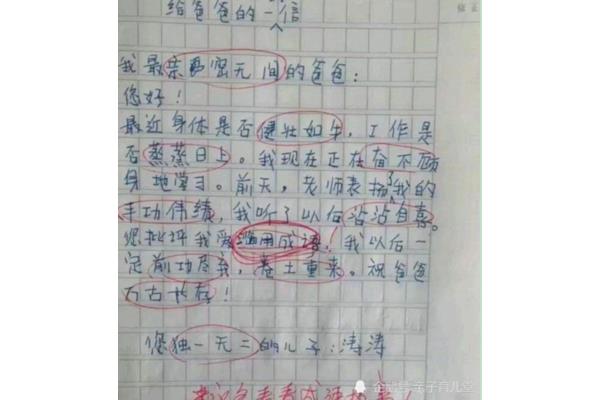 给爸爸的一信
我最亲密无间的爸爸：
您好！
最近身体是否健壮如牛，工作是
否蒸蒸日上。我现在正在奋不顾
身地学习。前天，老师表扬了我的
丰功伟绩，我听了以后沾沾自喜。
您批评我爱滥用成语，我以后一
定前功尽弃，卷土重来。祝爸爸
万古长存！
您独一无二的儿子：涛涛